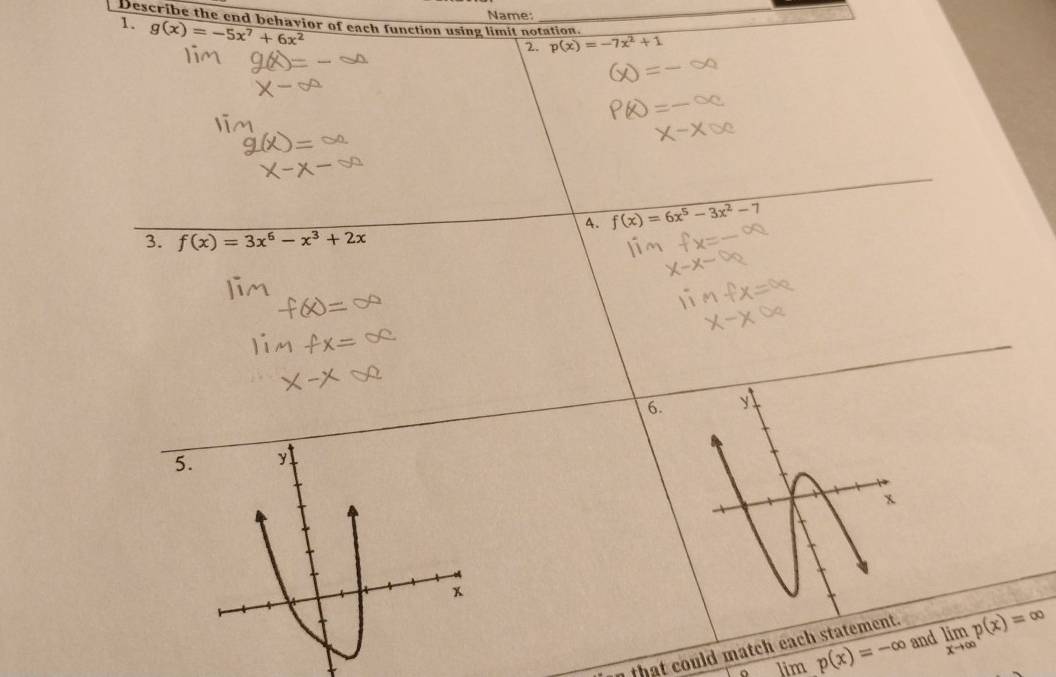 Name:
Describe the end behavior of each function using limit notation.
1. g(x) = -5x⁷ + 6x²
lim g(x) = -∞
x-∞
lim
g(x) = ∞
x-x-∞
2. p(x) = -7x² + 1
(x) = -∞
P(x) = -∞
x-x∞
3. f(x) = 3x⁶ - x³ + 2x
lim
f(x) = ∞
lim fx = ∞
x-x ∞
4. f(x) = 6x⁵ - 3x² - 7
lim fx = -∞
x-x-∞
lim fx = ∞
x-x ∞
5.
y
x
6.
y
x
that could match each statement.
lim p(x) = -∞ and lim p(x) = ∞
x→∞